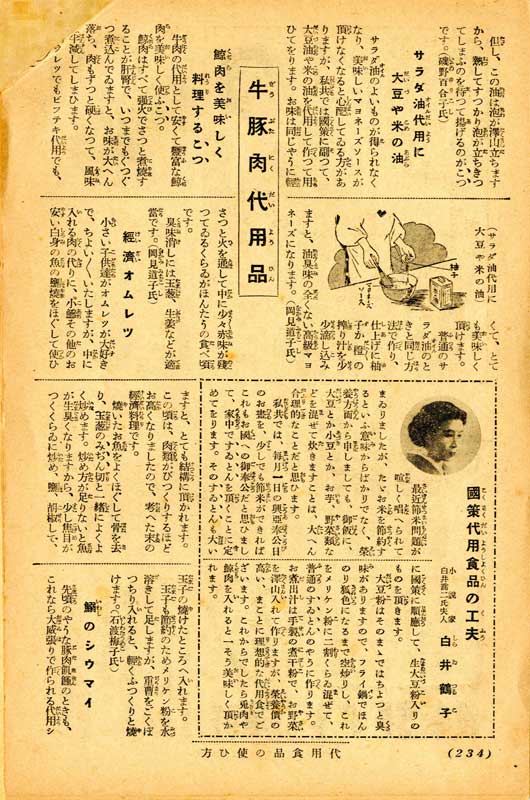 但し、この油は泡が澤山立ちます
から、熱してすつかり泡が立ちきつ
てしまふのを待つて揚げるのがこつ
です。(磯野百合子氏)
サラダ油代用に
大豆や米の油
サラダ油のよいものが得られなく
なり、美味しいマヨネーズソースが
頂けなくなると心配してゐる方があ
りますが、私共では國策に副つて、
大豆油や米の油を代用して作つて用
ひてをります。お味は同じやうに輕
くて、とて
も美味しく
頂けます。
普通のサ
ラダ油のと
きと同じ方
法で作り、
仕上げに柚
子か橙の
搾り汁を少
少濾し込み
ますと、油臭味の全くない高級マヨ
ネーズになります。(岡見道子氏)
(サラダ代用に
大豆や米の油)
柚子
牛豚肉代用品
ぎう ぶた にく だい よう ひん
鯨肉を美味しく
料理するこつ
牛肉の代用として安くて豐富な鯨
肉を美味しく使ふこつ。
鯨肉はすべて强火でさつと煮燒す
ることが肝腎で、いつまでもぐつぐ
つ煮込んでゐますと、お味が大へん
落ち、肉もずつと硬くなつて、風味
も半減してしまひます。
カツレツでもビフテキ代用でも、
さつと火を通して中に少々赤味が殘
つてゐるくらゐがほんたうの食べ頃
です。
臭味消しには玉葱、生姜などが適
當です。(岡見道子氏)
經濟オムレツ
小さい子供達がオムレツが大好き
で、ちよい〱いたしますが、中に
入れる肉の代りに、小鰺その他のお
安い白身の魚の鹽燒をほぐして使ひ
ますと、とても結構に頂かれます。
この頃は、肉類がびつくりするほど
お高くなりましたので、考へた末の
經濟料理です。
燒いたお魚をよくほぐして骨を去
り、玉葱のみぢん切と一緖によくよ
く炒めます。炒め方が足りないと魚
が生臭くなりますから、少し焦目が
つくくらゐに炒め、鹽、胡椒して、
玉子の燒けたところへ入れます。
玉子も節約のためメリケン粉を水
溶きして足しますが、重曹をごくぽ
つちり入れると、輕くふつくりと燒
けます。(石渡梅子氏)
鰯のシウマイ
先頃のやうな豚肉飢饉のときも、
これなら大威張りで作られる代用シ
國策代用食品の工夫
こくさくだいようしよくひん く ふう
小說家
白井喬二氏夫人
白井鶴子
しら ゐ つる こ
最近節米問題が
喧しく唱へられて
まゐりましたが、たゞお米を節約す
るといふ意味からばかりでなく、榮
養方面から申しましても、御飯に
大豆とか小豆とか、お芋、野菜類な
どを混ぜて炊きますことは、大へん
合理的なことだと思ひます。
私共では、每月一日の興亞奉公日
のお晝を、少しでも節米ができれば
これもお國への御奉公だと思ひまし
て、家中ですゐとんを頂くことに定
めてをります。そのすゐとんも大い
に國策に順應して、生大豆粉入りの
ものを頂きます。
大豆粉はそのまゝではちよつと臭
味がありますので、フライ鍋でほん
のり狐色になるまで空炒りし、これ
をメリケン粉に二割くらゐ混ぜて、
普通のすゐとんのやうに作ります。
お煮出汁は手製の煮干粉で、お野菜
を澤山入れて作りますが、榮養價の
高い、まことに理想的な代用食でご
ざいます。これからでしたら兎肉や
鯨肉を入れると一そう美味しく頂か
れます。
方ひ使の品食用代
(234)